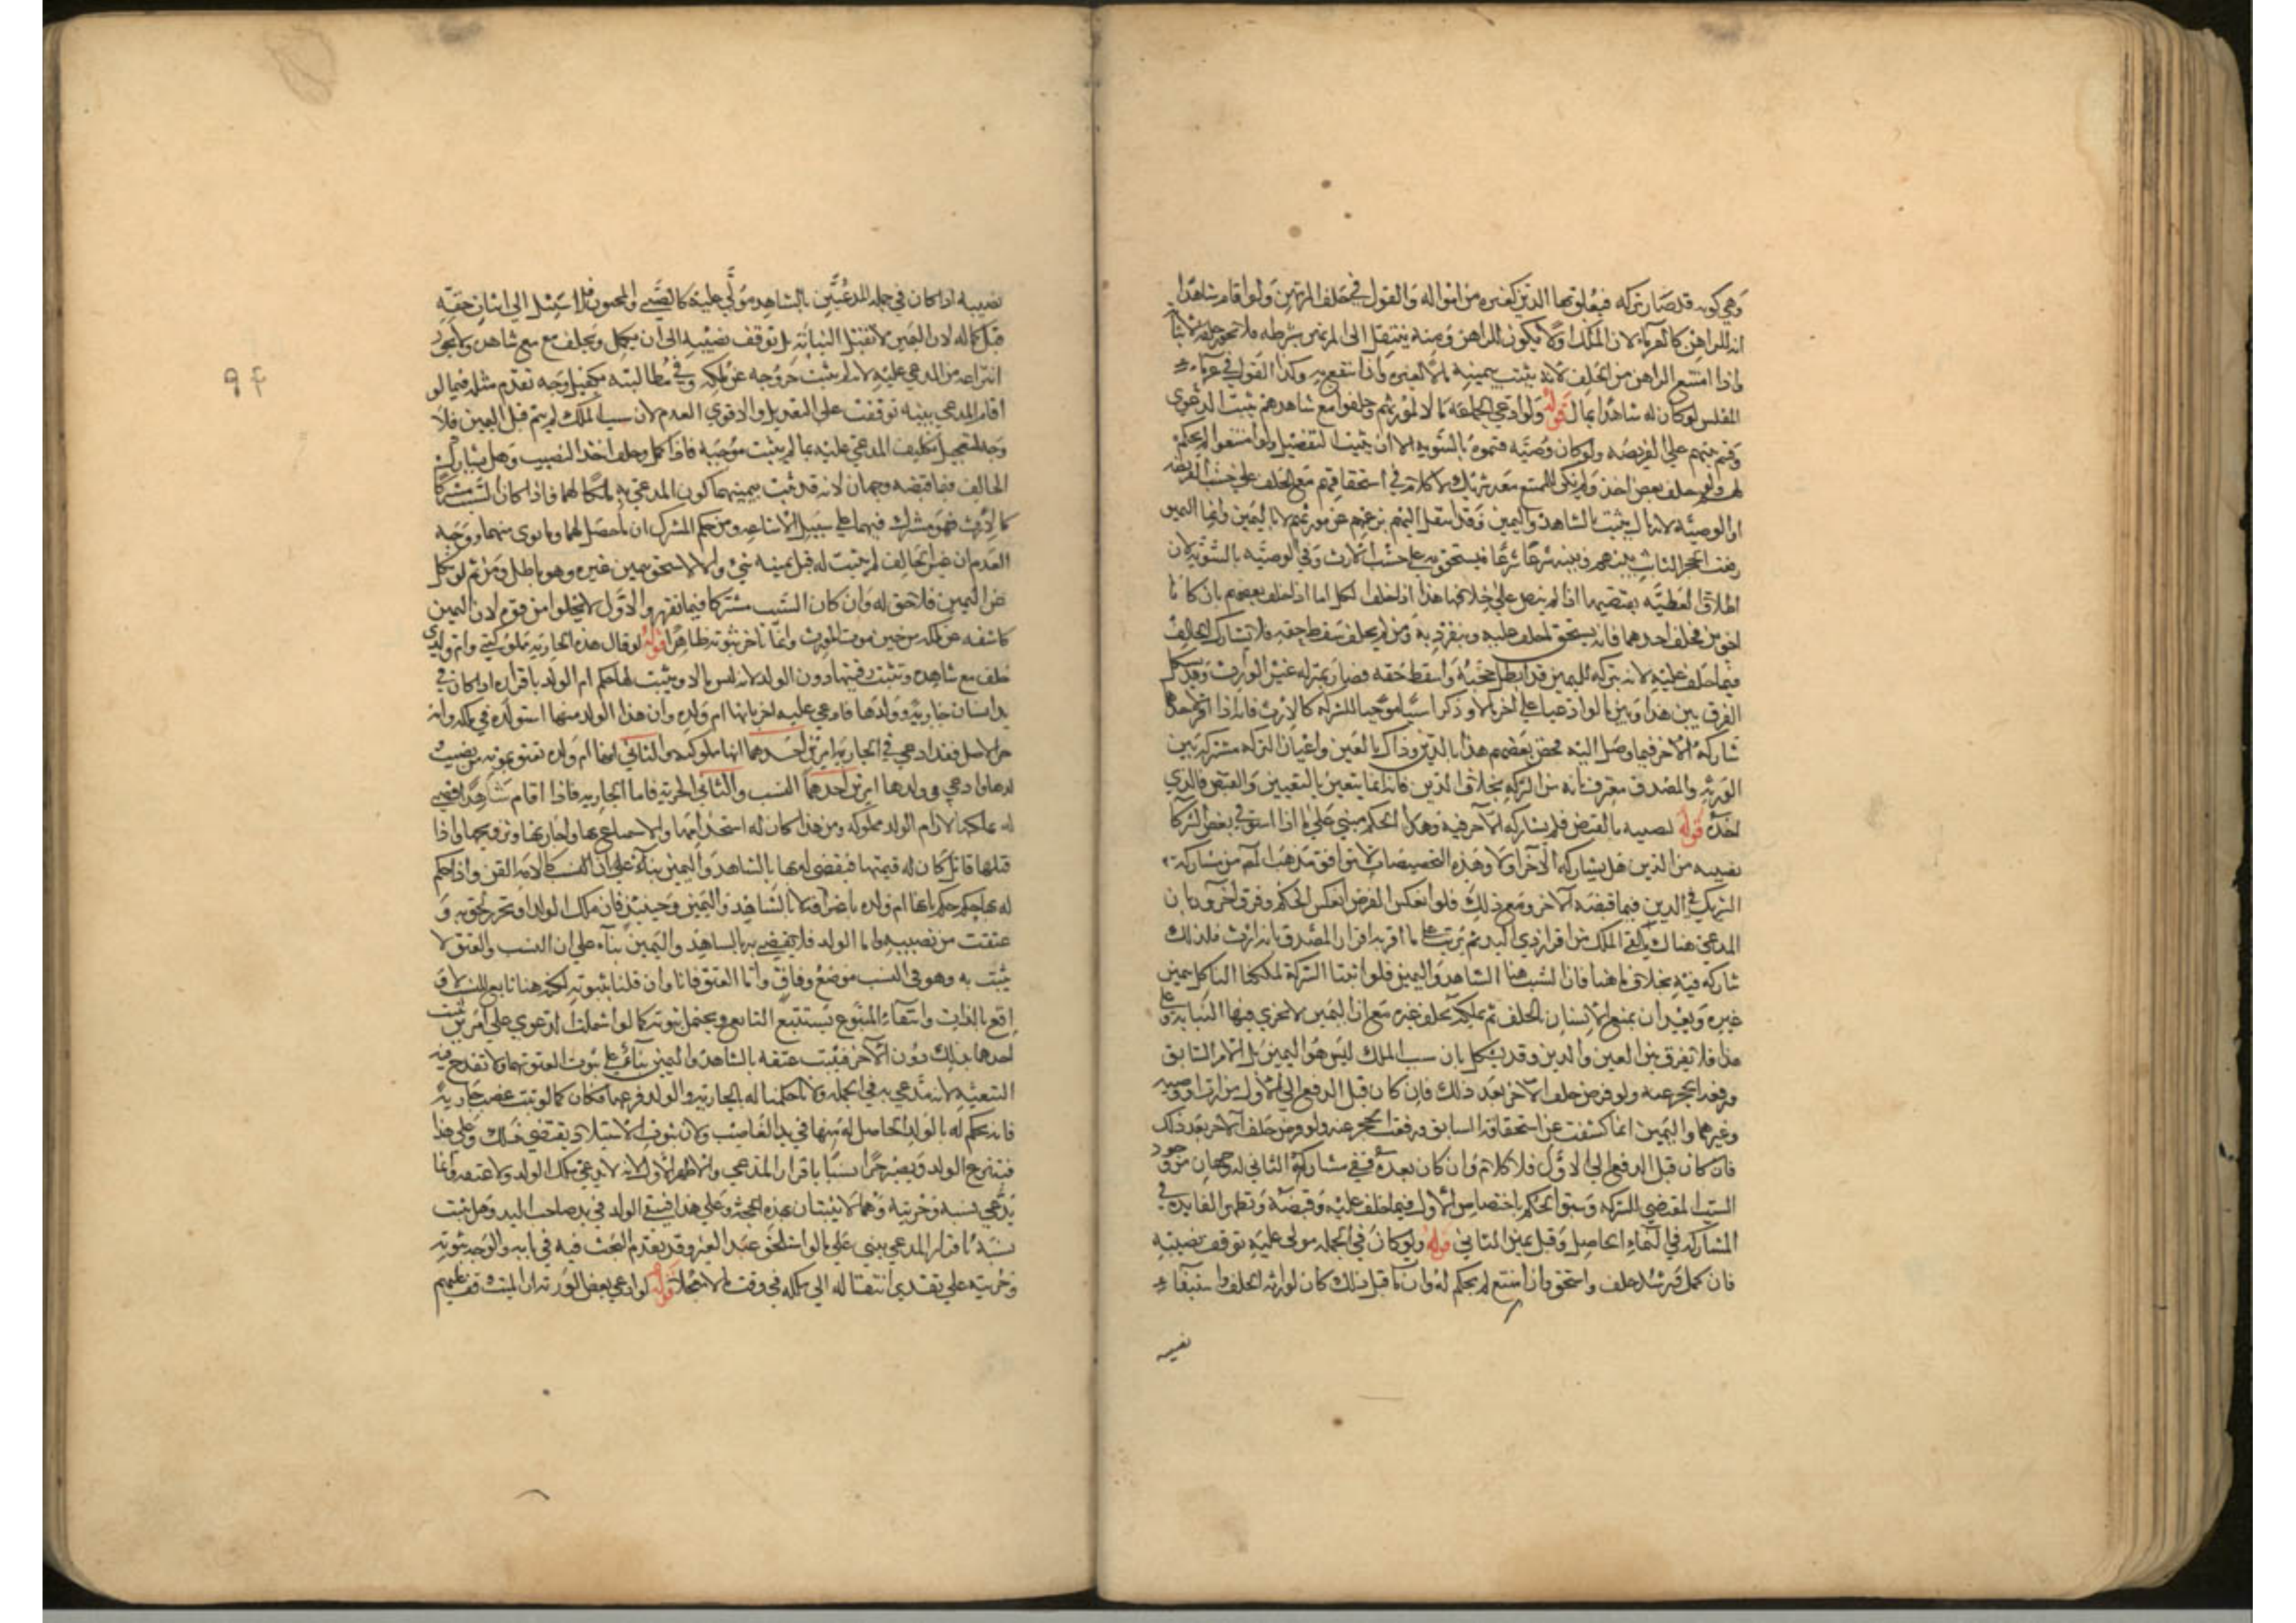 وهي كونه قد صار تركه فيعلق بها الدين كغيره من امواله والقول في حلف المرتهن ولو اقام شاهدا
انه للراهن كالغرماء لان الملك اولا يكون للراهن ومنه ينتقل الى المرتهن بشرطه فلا يجوز حلفه لاثباته
واذا امتنع الراهن من الحلف لانه يثبت بيمينه مالا لغيره واذا انتفع به وكذا القول في غرماء
المفلس لو كان له شاهدا بمال قوله ولو ادعى الجماعه مالا لمورثهم وحلفوا مع شاهدهم ثبت الدعوى
وقسم بينهم على الفريضه ولو كان وصيه قسموه بالسويه الا ان يثبت التفضيل ولو امتنعوا لم يحكم
لهم ولو حلف بعض اخذ ولم يكن للممتنع معه شركه ولا كلام في استحقاقهم مع الحلف على حسب الفريضه
او الوصيه لانه مال يثبت بالشاهد واليمين وقد انتقل اليهم بزعمهم عن مورثهم لا باليمين وانما اليمين
رفعت الحجر الثابت بينهم وبينه شرعا فيستحق به على حسب الارث وفي الوصيه بالسويه لان
اطلاق العطيه يقتضيها اذا لم ينص على خلافها هذا اذا حلف الكل اما اذا حلف بعضهم بان كانا
اخوين فحلف احدهما فانه يستحق ما حلف عليه وينفرد به ومن لم يحلف سقط حقه فلا يشارك الحالف
فيما حلف عليه لانه بتركه لليمين قد ابطل حجته واسقط حقه فصار بمنزله غير الوارث وقد يشكل
الفرق بين هذا وبين ما لو ادعيا على اخر مالا وذكرا سببا موجبا للشركه كالارث فانه اذا اقر لاحدهما
شاركه الاخر فيما وصل اليه فخص بعضهم هذا بالدين وذاك بالعين واعيان التركه مشتركه بين
الورثه والمصدق معترف بانه من التركه بخلاف الدين فانه انما يتعين بالتعيين والقبض فالذي
اخذه قوله نصيبه بالقبض فلم يشاركه الاخر فيه وهذا الحكم مبني على ما اذا استوفى بعض الشركا
نصيبه من الدين هل يشاركه الآخر اولا وهذه التخصيصات لا توافق مذهب المص من مشاركه
الشريك في الدين فيما قبضه الآخر ومع ذلك فلو انعكس الفرض انعكس الحكم وفرق آخرون بان
المدعي هناك يتلقى الملك من اقرار ذي اليد ثم يترتب على ما اقر به اقرار المصدق بانه ارث فلذلك
شاركه فيه بخلاف ما هنا فان السبب هنا الشاهد واليمين فلو اثبتنا الشركة لملكنا الناكل بيمين
غيره وبعيد ان يمنع الانسان الحلف ثم يملك بحلف غيره مع ان اليمين لا تجري فيها النيابه وعلى
هذا فلا يفرق بين العين والدين وقد يشكل بان سبب الملك ليس هو اليمين بل الامر السابق
ورفعه الحجر عنه ولو فرض حلف الآخر بعد ذلك فان كان قبل الدفع الى الاول من ارث او وصيه
وغيرهما واليمين انما كشفت عن استحقاقه السابق ورفعت الحجر عنه ولو فرض حلف الآخر بعد ذلك
فان كان قبل الدفع الى الاول فلا كلام وان كان بعده ففي مشاركة الثاني له وجهان من وجود
السبب المقتضي للشركه وسبق الحكم باختصاص الاول فيما حلف عليه وقبضه وتظهر الفايده في
المشاركه في النماء الحاصل وقبل يمين الثاني قوله ولو كان في الجمله مولى عليه توقف نصيبه
فان كمل ورشد حلف واستحق وان امتنع لم يحكم له وان مات قبل ذلك كان لوارثه الحلف واستيفاء
نصيبه
نصيبه اذا كان في جمله المدعيين بالشاهد مولى عليه كالصبي والمجنون فلا سبيل الى اثبات حقه
قبل كماله لان اليمين لا تقبل النيابة بل توقف نصيبه الى ان يكمل ويحلف مع شاهده ولا يجوز
انتزاعه من المدعى عليه لانه لم يثبت خروجه عن ملكه وفي مطالبته بكفيل وجه تقدم مثله فيما لو
أقام المدعي بينه توقفت على التعديل والاقوى العدم لان سبب الملك لم يتم قبل اليمين فلا
وجه لتعجيل تكليف المدعى عليه بما لم يثبت موجبه فاذا كمل وحلف اخذ النصيب وهل يشارك
الحالف فيما قبضه وجهان لانه قد ثبت بيمينهما كون المدعى به ملكا لهما فاذا كان السبب مشتركا
كالارث فهو مشترك فيهما على سبيل الاشاعه ومن حكم المشترك ان ما حصل لهما وما توى منهما ووجه
العدم ان غير الحالف لم يثبت له قبل يمينه شيء والا لاستحق بيمين غيره وهو باطل ومن ثم لو نكل
عن اليمين فلا حق له وان كان السبب مشتركا فيما تقرر والاول لا يخلوا من قوه لان اليمين
كاشفه عن ملكه من حين موت المورث وانما تاخر ثبوته ظاهرا قوله لو قال هذه الجاريه مملوكتي وام ولدي
حلف مع شاهده وتثبت رقيتها دون الولد لانه ليس مالا ويثبت لها حكم ام الولد باقراره اذا كان في
يد انسان جاريه وولدها فادعى عليه اخر بانها ام ولده وان هذا الولد منها استولده في ملكه وانه
حر الاصل فقد ادعى في الجاريه امرين احدهما انها مملوكته والثاني انها ام ولده تعتق بموته من نصيب
ولدها وادعى في ولدها امرين احدهما النسب والثاني الحريه فاما الجاريه فاذا اقام شاهدا قضي
له بملكها لان ام الولد مملوكه ومن هذا كان له استخدامها والاستمتاع بها واجارتها وتزويجها واذا
قتلها قاتل كان له قيمتها فيقضى له بها بالشاهد واليمين بناء على ان النسب كالامه القن واذا حكم
له بها حكم حكم بانها ام ولده باعترافه لا بالشاهد واليمين وحينئذ فان ملك الولد او تحرر لحق به و
عتقت من نصيبه واما الولد فلا يقضى به بالشاهد واليمين بناء على ان النسب والعتق لا
يثبت به وهو في النسب موضع وفاق واما العتق فانا وان قلنا بثبوته لكنه هنا تابع للنسب لا و
اقع بالذات وانتفاء المتبوع يستتبع التابع ويحتمل ثبوته كما لو اشتملت الدعوى على امرين يثبت
احدهما بذلك دون الآخر فيثبت عتقه بالشاهد واليمين بناء على ثبوت العتق بهما ولا تقدح فيه
التبعيه لانه مدعى به في الجمله ولانا حكمنا له بالجاريه والولد فرعها فكان كما لو ثبت غصب جاريه
فانه يحكم له بالولد الحاصل له منها في يد الغاصب ولان ثبوت الاستيلاد يقتضي ذلك وعلى هذا
فينتزع الولد ويصير حرا نسيبا باقرار المدعي والاظهر الاول لانه لا يدعي ملك الولد ولا عتقه وانما
يدعي نسبه وحريته وهما لا يثبتان بهذه الحجة وعلى هذا فيبقى الولد في يد صاحب اليد وهل يثبت
نسبه باقرار المدعي يبنى على ما لو استلحق عبد الغير وقد تقدم البحث فيه في بابه والوجه ثبوته
وحريته على تقدير انتقاله الى ملكه في وقت ما لا معجلا قوله لو ادعى بعض الورثه ان الميت وقف عليهم